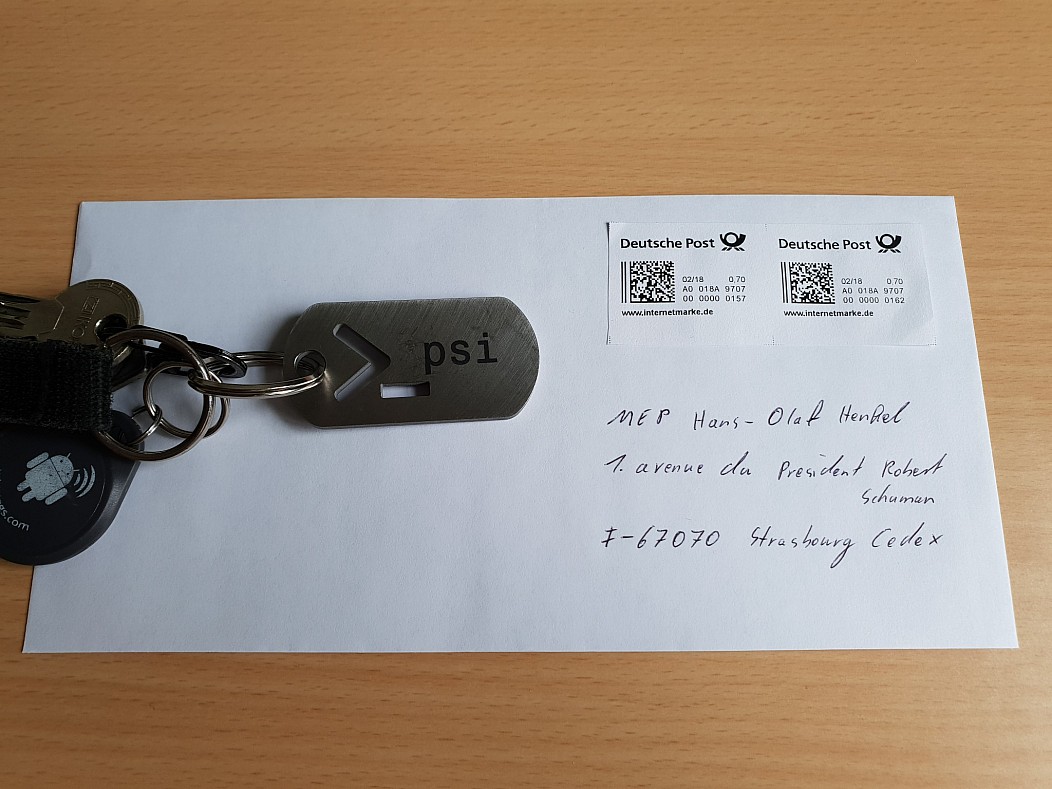 Deutsche Post
02/18 0,70
A0 018A 9707
00 0000 0157
www.internetmarke.de
Deutsche Post
02/18 0,70
A0 018A 9707
00 0000 0162
www.internetmarke.de
psi
MEP Hans-Olaf Henkel
1. avenue du President Robert
Schuman
F-67070 Strasbourg Cedex